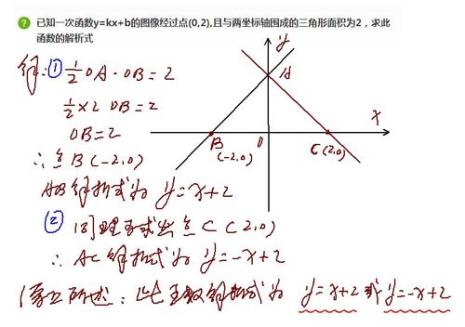 已知一次函数y=kx+b的图像经过点(0,2),且与两坐标轴围成的三角形面积为2，求此
函数的解析式
解:① ½OA·OB=2
½×2 OB=2
OB=2
∴点B(-2,0)
AB解析式为 y=x+2
② 同理可求出点C(2,0)
∴ AC解析式为 y=-x+2
综上所述：此函数解析式为 y=x+2或y=-x+2
y
A
x
B
(-2,0)
O
C(2,0)